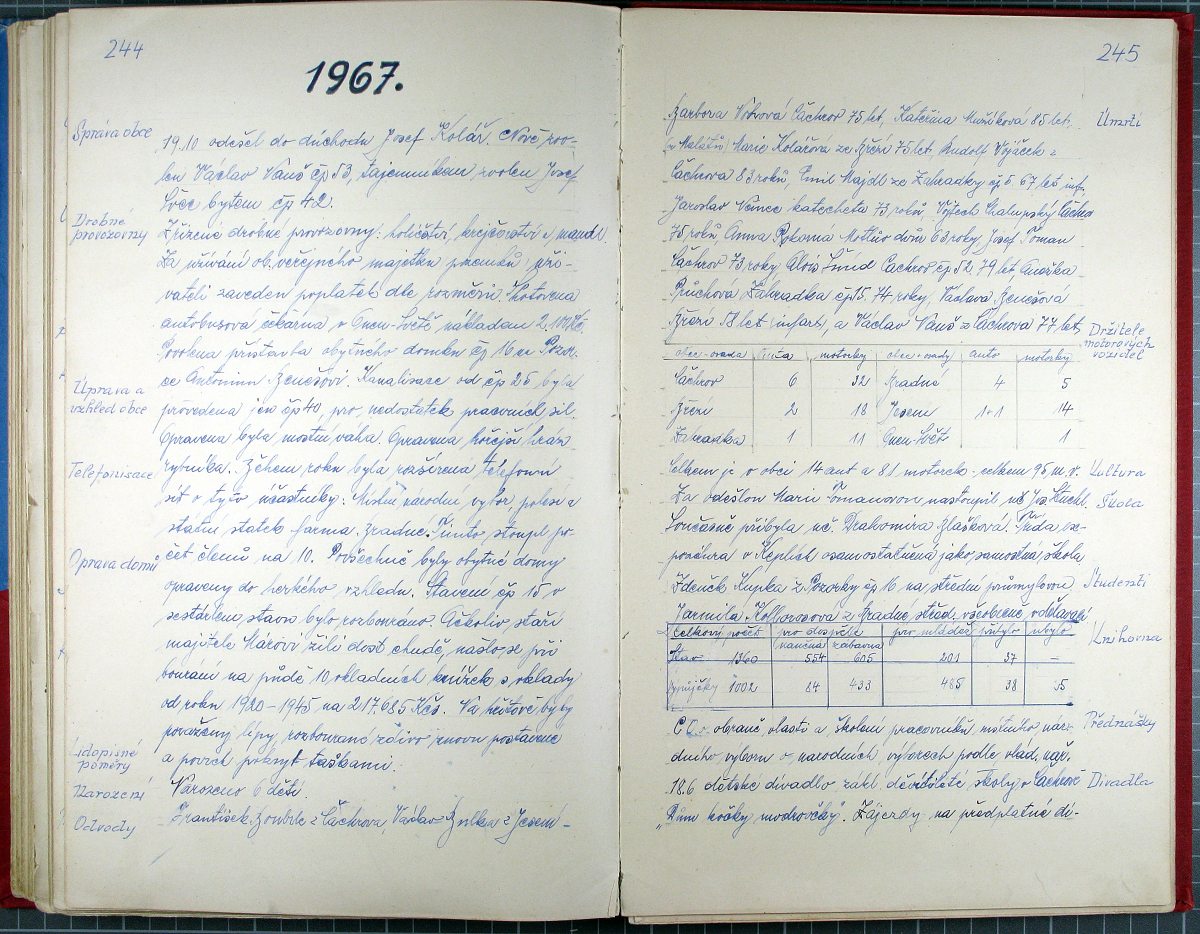 244
1967.
Správa obce
19.10 odešel do důchodu Josef Kolář. Nově zvo-
len Václav Vaňs čp 53, tajemníkem zvolen Josef
bytem čp 42.
Drobné
provozovny
Zřízené drobné provozovny: holičství, krejčovství a mandl.
Za užívání ob. veřejného majetku pozemků, uži-
vateli zaveden poplatek dle rozměrů. Zhotovena
autobusová čekárna v nákladem 2.100 Kčs.
Povolena přístavba obytného domku čp 16 na Pozor-
ce Antonínu Benešovi. Kanalisace od čp 25 byla
Úprava a
vzhled obce
provedena jen čp 40, pro nedostatek pracovních sil.
Opravena byla mostní váha. Opravena hořejší hráz
rybníka. Během roku byla rozšířena telefonní
Telefonisace
síť o tyto účastníky: Místní národní výbor, polesí a
statní statek farma Hradné. Tímto stoupl po-
čet členů na 10. Povšechně byly obytné domy
Oprava domů
opraveny do hezkého vzhledu. Stavení čp 15 v
sestárlém stavu bylo rozbouráno. Ačkoliv staří
majitelé žili dost chudě, našlo se při
bourání na půdě 10 vkladních knížek s vklady
od roku 1920-1945 na 217.685 Kčs. Na hřbitově byly
poraženy lípy rozbourané zdivo znovu postavené
a povrch pokryt taškami.
Lidopisné
poměry
Narození
Narozeno 6 dětí.
Odvody
František Bouble z Čachrova, Václav z Jesení-
245
Barbora Čachrov 75 let, Kateřina 85 let,
Úmrtí
Marie Kolářová ze Březí 75 let, Rudolf Vojáček z
Čachrova 83 roků, Emil Majdl ze Zahrádky čp 5 67 let inf.
Jaroslav katecheta 73 roků, Vojtěch Chalupský Čachrov
75 roků Anna Pokorná dvůr 63 roky, Josef Toman
Čachrov 73 roky, Alois Čachrov čp 52 79 let Anežka
Průchová Zahrádka čp 15, 74 roky, Václava Benešová
Březí 58 let (infart) a Václav Vaňs z Čachrova 77 let
Držitelé
motorových
vozidel
obec-osada auta motorky obec-osady auto motorky
Čachrov 6 32 Hradné 4 5
Březí 2 18 Jesení 1+1 14
Zahrádka 1 11 1
Celkem je v obci 14 aut a 81 motorek - celkem 95 m.v.
Kultura
Za odešlou Marii Tomanovou nastoupil uč. Jos. Kuchl.
Škola
Současně přibyla uč. Drahomíra Blašková. Třída ex-
positura v Keplích osamostatněná jako samostná škola
Zdeněk Kupka z Pozorky čp 16 na střední průmyslovou
Studenti
Jarmila z Hradné střed. všeobecně vdělávací
Celkový počet pro dospělé pro mládež přibylo ubylo
naučná zábavná
Knihovna
Stav 1360 554 605 201 37 —
Výpůjčky 1002 84 433 485 38 35
obraně vlasti a školení pracovníků místního náro-
Přednášky
dního výboru o národních výborech podle vlád. nař.
18.6 dětské divadlo zákl. devítileté školy v Čachrově
Divadla
"Dům kočky modroočky". Zájezdy na předplatné di-